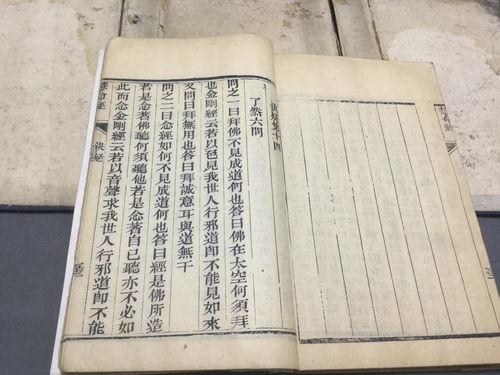 了然六問
問之一曰拜佛不見成道何也答曰佛在太空何須拜
也金剛經云若以色見我世人行邪道卽不能見如來
又問曰拜無用也答曰拜誠意耳與道無干
問之二曰念經如何不見成道何也答曰經是佛所造
若是念著佛聽何須聽他若是念著自已聽亦不必如
此而念金剛經云若以音聲求我世人行邪道卽不能
決疑